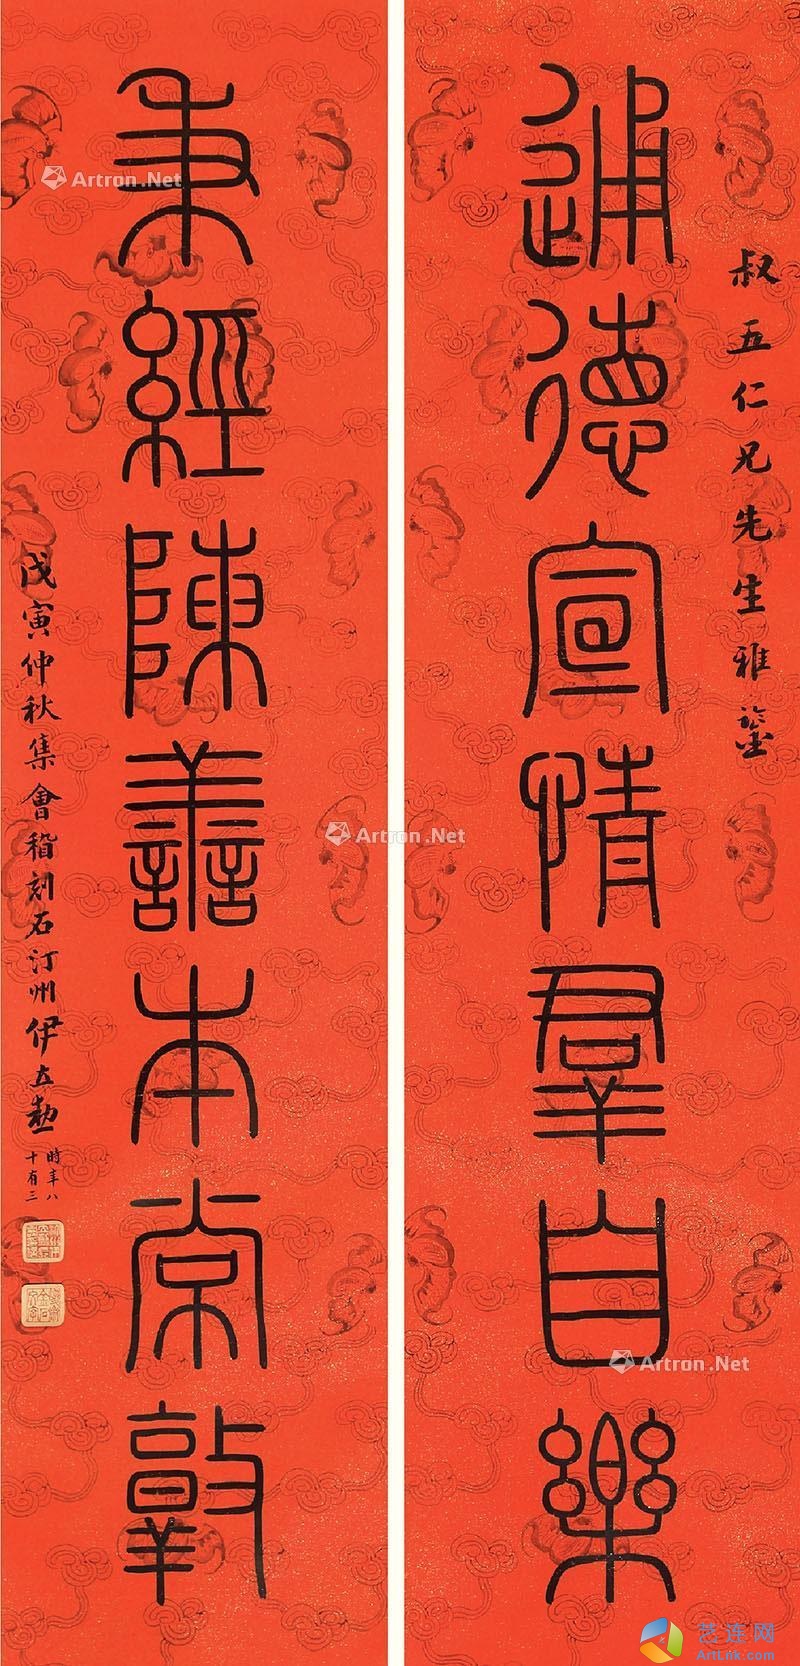 叔五仁兄先生雅鑒
通德宣情羣自樂
秉經陳善本常敦
戊寅仲秋集會稽刻石汀州伊立勳
時年八
十有三
Artron.Net
Artron.Net
Artron.Net
艺连网
ArtLink.com